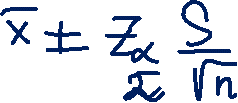 x̄ ± Z_{α/2} S/√n